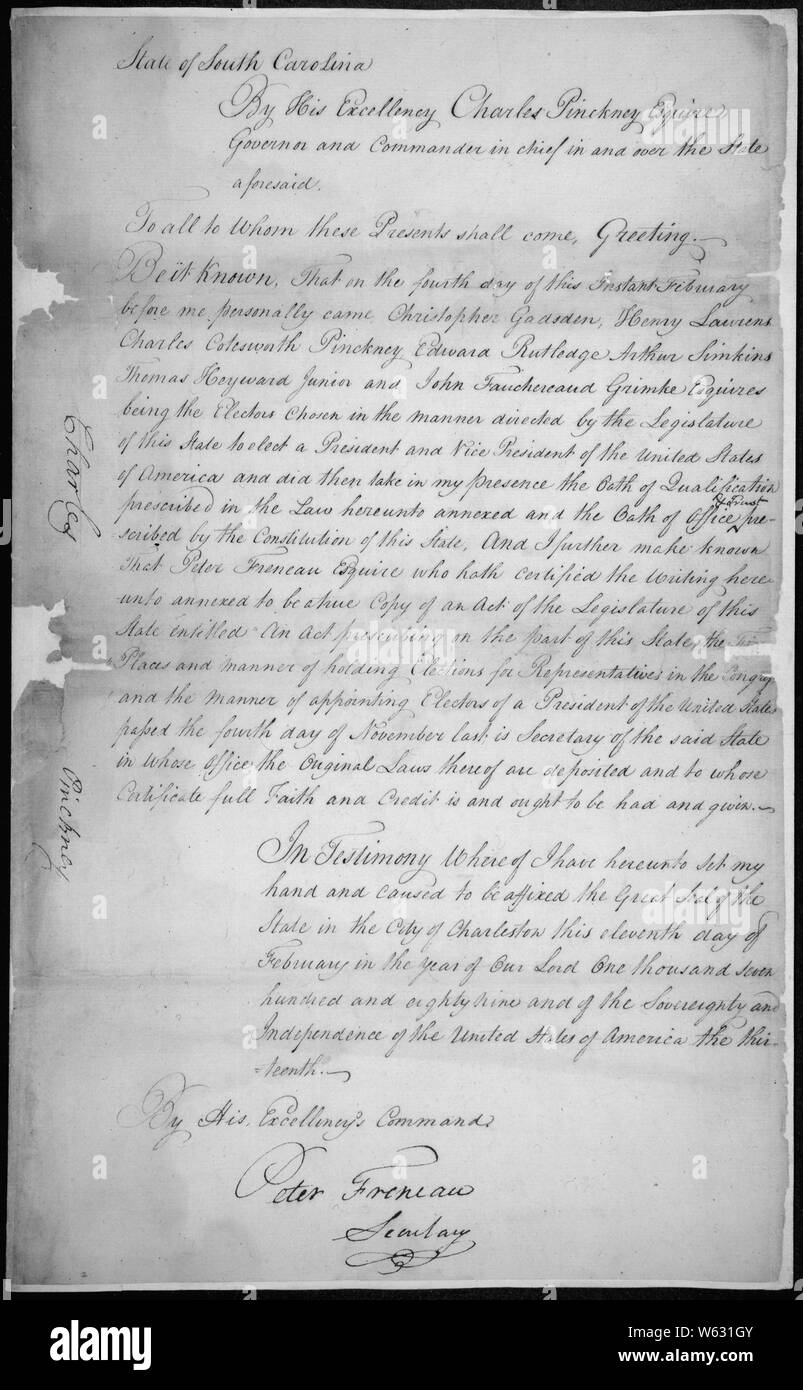 State of South Carolina
By His Excellency Charles Pinckney Esquire
Governor and Commander in chief in and over the State
aforesaid.
To all to Whom these Presents shall come, Greeting.
Be it Known, That on the fourth day of this Instant February
before me personally came Christopher Gadsden, Henry Laurens
Charles Cotesworth Pinckney Edward Rutledge Arthur Simkins
Thomas Heyward Junior and John Fauchereaud Grimke Esquires
being the Electors Chosen in the manner directed by the Legislature
of this State to elect a President and Vice President of the United States
of America and did then take in my presence the Oath of Qualification
prescribed in the Law hereunto annexed and the Oath of Office & Trust pre-
scribed by the Constitution of this State, And I further make known
That Peter Freneau Esquire who hath certified the Writing here
unto annexed to be a true Copy of an Act of the Legislature of this
State entitled "An Act prescribing on the part of this State, the
"Places and manner of holding Elections for Representatives in the Congress
and the manner of appointing Electors of a President of the United States
passed the fourth day of November last is Secretary of the said State
in whose office the Original Laws thereof are deposited and to whose
Certificate full Faith and Credit is and ought to be had and given.
In Testimony Whereof I have hereunto set my
hand and caused to be affixed the Great Seal of the
State in the City of Charleston this eleventh day of
February in the year of Our Lord One thousand seven
hundred and eighty nine and of the Sovereignty and
Independence of the United States of America the thir-
=teenth.
By His Excellency's Command
Peter Freneau
Secretary
Charles
Pinckney
alamy
alamy
alamy
alamy
Image ID: W631GY
www.alamy.com